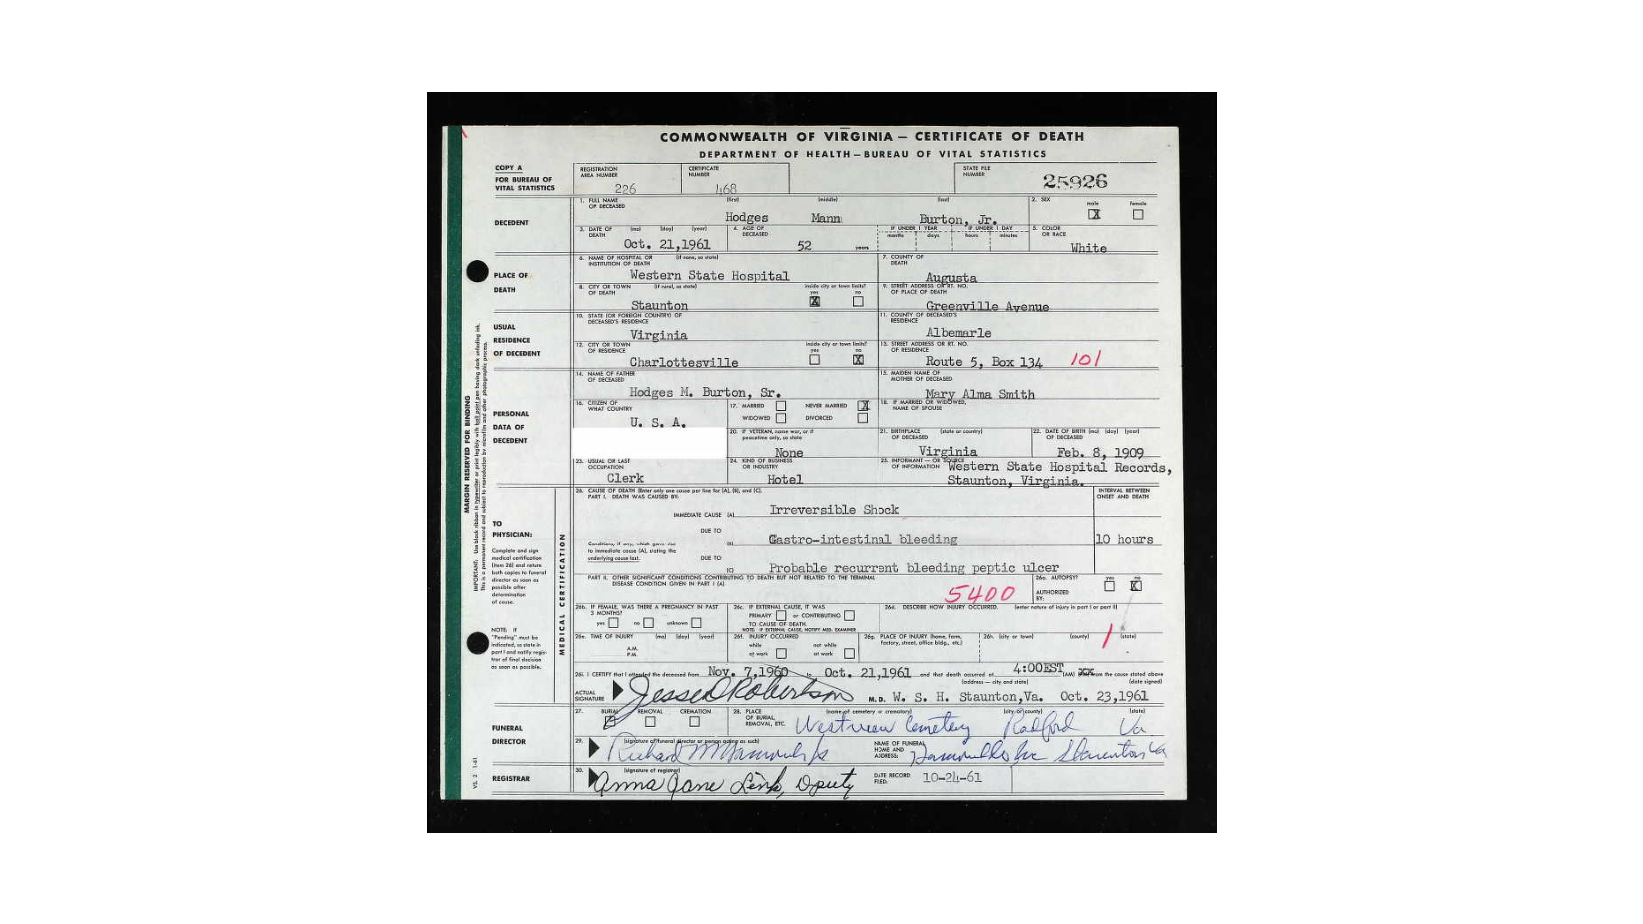 COMMONWEALTH OF VIRGINIA — CERTIFICATE OF DEATH
DEPARTMENT OF HEALTH—BUREAU OF VITAL STATISTICS
COPY A
FOR BUREAU OF
VITAL STATISTICS
REGISTRATION AREA NUMBER 226
CERTIFICATE NUMBER 468
STATE FILE NUMBER 25926
DECEDENT
1. FULL NAME OF DECEASED (first) (middle) (last)
Hodges Mann Burton, Jr.
2. SEX male X female
3. DATE OF DEATH (mo) (day) (year)
Oct. 21,1961
4. AGE OF DECEASED 52 years
IF UNDER 1 YEAR months days IF UNDER 1 DAY hours minutes
5. COLOR OR RACE White
PLACE OF DEATH
6. NAME OF HOSPITAL OR INSTITUTION OF DEATH (if none, so state)
Western State Hospital
7. COUNTY OF DEATH
Augusta
8. CITY OR TOWN OF DEATH (if rural, so state) inside city or town limits? yes X no
Staunton
9. STREET ADDRESS OR RT. NO. OF PLACE OF DEATH
Greenville Avenue
USUAL RESIDENCE OF DECEDENT
10. STATE (OR FOREIGN COUNTRY) OF DECEASED'S RESIDENCE
Virginia
11. COUNTY OF DECEASED'S RESIDENCE
Albemarle
12. CITY OR TOWN OF RESIDENCE inside city or town limits? yes no X
Charlottesville
13. STREET ADDRESS OR RT. NO. OF RESIDENCE
Route 5, Box 134 101
PERSONAL DATA OF DECEDENT
14. NAME OF FATHER OF DECEASED
Hodges M. Burton, Sr.
15. MAIDEN NAME OF MOTHER OF DECEASED
Mary Alma Smith
16. CITIZEN OF WHAT COUNTRY
U. S. A.
17. MARRIED NEVER MARRIED X
WIDOWED DIVORCED
18. IF MARRIED OR WIDOWED, NAME OF SPOUSE
20. IF VETERAN, name war, or if peacetime only, so state
None
21. BIRTHPLACE OF DECEASED (state or country)
Virginia
22. DATE OF BIRTH (mo) (day) (year) OF DECEASED
Feb. 8, 1909
23. USUAL OR LAST OCCUPATION
Clerk
24. KIND OF BUSINESS OR INDUSTRY
Hotel
25. INFORMANT — OR SOURCE OF INFORMATION
Western State Hospital Records,
Staunton, Virginia.
MARGIN RESERVED FOR BINDING
TO PHYSICIAN:
Complete and sign
medical certification
(item 26) and return
both copies to funeral
director as soon as
possible after
determination
of cause.
NOTE: IF
"Pending" must be
indicated, so state in
part I and notify regis-
trar of final decision
as soon as possible.
MEDICAL CERTIFICATION
26. CAUSE OF DEATH (Enter only one cause per line for (A), (B), and (C).
PART I. DEATH WAS CAUSED BY:
INTERVAL BETWEEN ONSET AND DEATH
IMMEDIATE CAUSE (A) Irreversible Shock
DUE TO
Conditions, if any, which gave rise
to immediate cause (A), stating the
underlying cause last.
Gastro-intestinal bleeding 10 hours
DUE TO
Probable recurrent bleeding peptic ulcer
PART II. OTHER SIGNIFICANT CONDITIONS CONTRIBUTING TO DEATH BUT NOT RELATED TO THE TERMINAL
DISEASE CONDITION GIVEN IN PART I (A)
5400
26a. AUTOPSY? yes no X
AUTHORIZED BY:
26b. IF FEMALE, WAS THERE A PREGNANCY IN PAST 3 MONTHS?
yes no unknown
26c. IF EXTERNAL CAUSE, IT WAS
PRIMARY or CONTRIBUTING
TO CAUSE OF DEATH.
NOTE: IF EXTERNAL CAUSE, NOTIFY MED. EXAMINER
26d. DESCRIBE HOW INJURY OCCURRED. (enter nature of injury in part I or part II)
26e. TIME OF INJURY (mo) (day) (year)
A.M.
P.M.
26f. INJURY OCCURRED
while at work not while at work
26g. PLACE OF INJURY (home, farm, factory, street, office bldg., etc.)
26h. (city or town) (county) (state)
26i. I CERTIFY that I attended the deceased from Nov. 7,1960 to Oct. 21,1961 and that death occurred at 4:00EST (AM) from the cause stated above
(address — city and state) (date signed)
ACTUAL SIGNATURE Jesse D Robertson M.D. W. S. H. Staunton,Va. Oct. 23,1961
FUNERAL DIRECTOR
27. BURIAL REMOVAL CREMATION
28. PLACE OF BURIAL, REMOVAL, ETC. (name of cemetery or crematory) (city or county) (state)
Westview Cemetery Radford Va
29. (signature of funeral director or person acting as such)
Richard M
NAME OF FUNERAL HOME AND ADDRESS: Staunton Va
REGISTRAR
30. (signature of registrar)
Anna Jane Link, Deputy
DATE RECORD FILED: 10-24-61